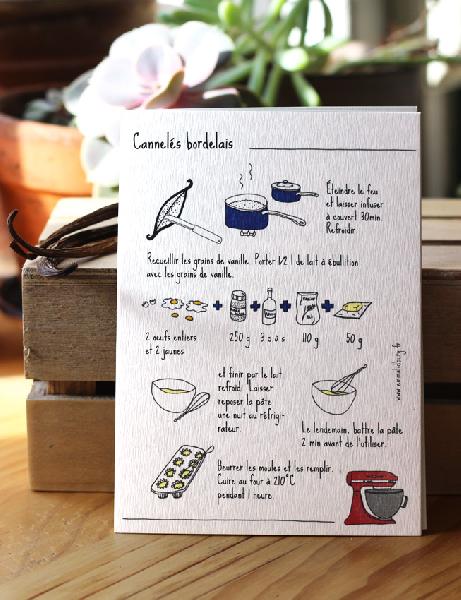 Cannelés bordelais
Éteindre le feu
et laisser infuser
à couvert 30min.
Refroidir
Recueillir les grains de vanille. Porter 1/2 l de lait à ébullition
avec les grains de vanille.
+ + + +
2 œufs entiers
et 2 jaunes
250 g
3 c à s
110 g
50 g
et finir par le lait
refroidi. Laisser
reposer la pâte
une nuit au réfrigé-
rateur.
Le lendemain, battre la pâte
2 min avant de l'utiliser.
Beurrer les moules et les remplir.
Cuire au four à 210°C
pendant 1 heure.